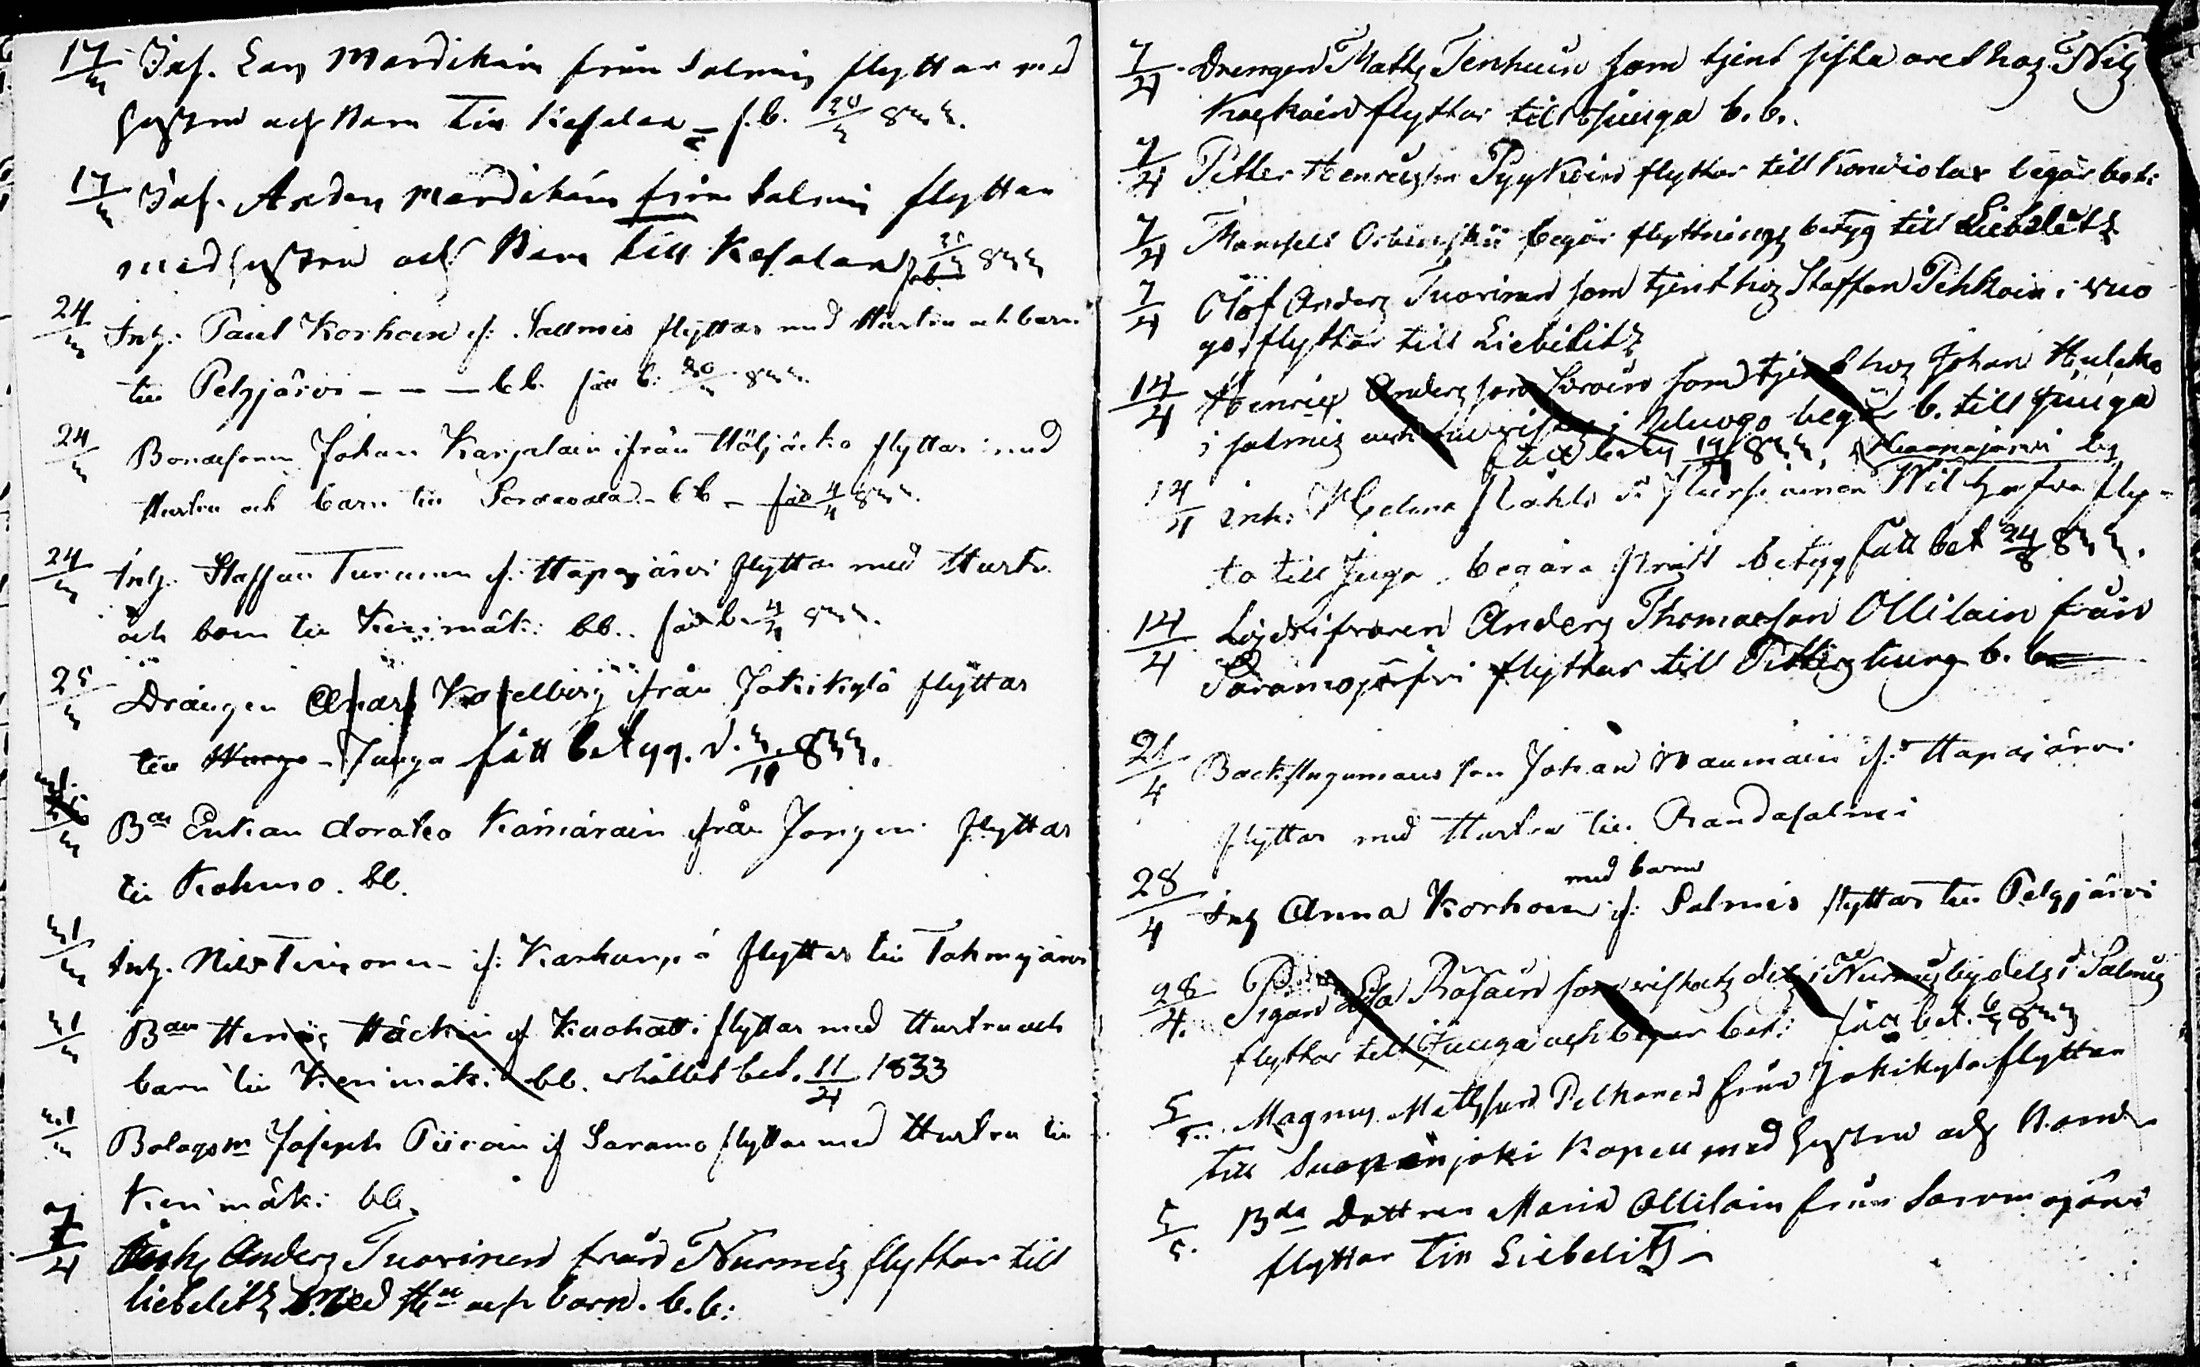 17/3 Inh. Lars Mardikain från Salmis flyttar med
hustru och Barn till Kesalax f.b. 20/3 833.
17/3 Inh. Anders Mardikain från Salmis flyttar
med hustru och Barn till Kesalax 833
24/3 Inh. Paul Korhoin if: Salmis flyttar med Hustru och barn
till Pelgjärvi - - - b.b. fått b: 30/3 833.
24/3 Bondesonen Johan Karjalain ifrån Höljäcka flyttar med
Hustru och barn till Sordavala - bb - fåd 4/4 833.
24/3 Inh. Staffan Turunen if: Hapajärvi flyttar med Hustru
och barn till Kerimäki bb.. fåd b. 4/4 833.
25/3 Drängen Anders Koselberg ifrån Jokikylä flyttar
till Juuga fått betyg. d. 833.
31/3 Bde Enkan dorotea Kämäräin ifrån Jongeri flyttar
till Kohmo. bb.
31/3 Inh. Nils Timonen if: Karhunpä flyttar till Tohmajärvi
31/3 Bden Henric Häckin if Kuohatti flyttar med Hustru och
barn till Kerimäki bb. erhållet bet. 11/4 1833
31/3 Bolagsm Joseph Piirain if Saramo flyttar med Hustru till
Kerimäki bb.
7/4 Inh. Anders Tuorinen från Nurmis flyttar till
Liebelitz med Hu och barn. b.b:
7/4 Drengen Matts Tenhuin som tjent sista året hos Nils
Koskain flyttar till Juuga b.b.
7/4 Petter Henricsson Pyyköin flyttar till Kondiolax begär bet:
7/4 Mamsell begär flyttnings betyg till Liebelitz
7/4 Olof Anders Tuorinen som tjent hos Staffan Pehkoin i Vuo
go, flyttar till Liebelitz
14/4 Henric Andersson som tjent hos Johan
i Salmis och begär b. till Juuga
fått betyg 19/4 833,
14/4 inh. Helena fly-
ta till Juga begära betyg fått bet 24/8 833.
14/4 Anders Thomasson Ollilain från
Saramojärfvi flyttar till Pettersburg b. b.
21/4 Johan Naumain if: Hapajärvi
flyttar med Hustru till Randasalmi
med barn
28/4 Inh Anna Korhoin if: Salmis flyttar till Pelgjärvi
28/4. Pigan Räsäin som i Nurmis bydels i Salmis
flyttar till Juuga och begär bet: fått bet. 6/5 833
5/5. Magnus Mattsson Pelkonen från Jokikylä flyttar
till Suojänjoki Kapell med hustru och Barn
5/5. Bde Dottren Maria Ollilain från Saramojärvi
flyttar till Liebelitz